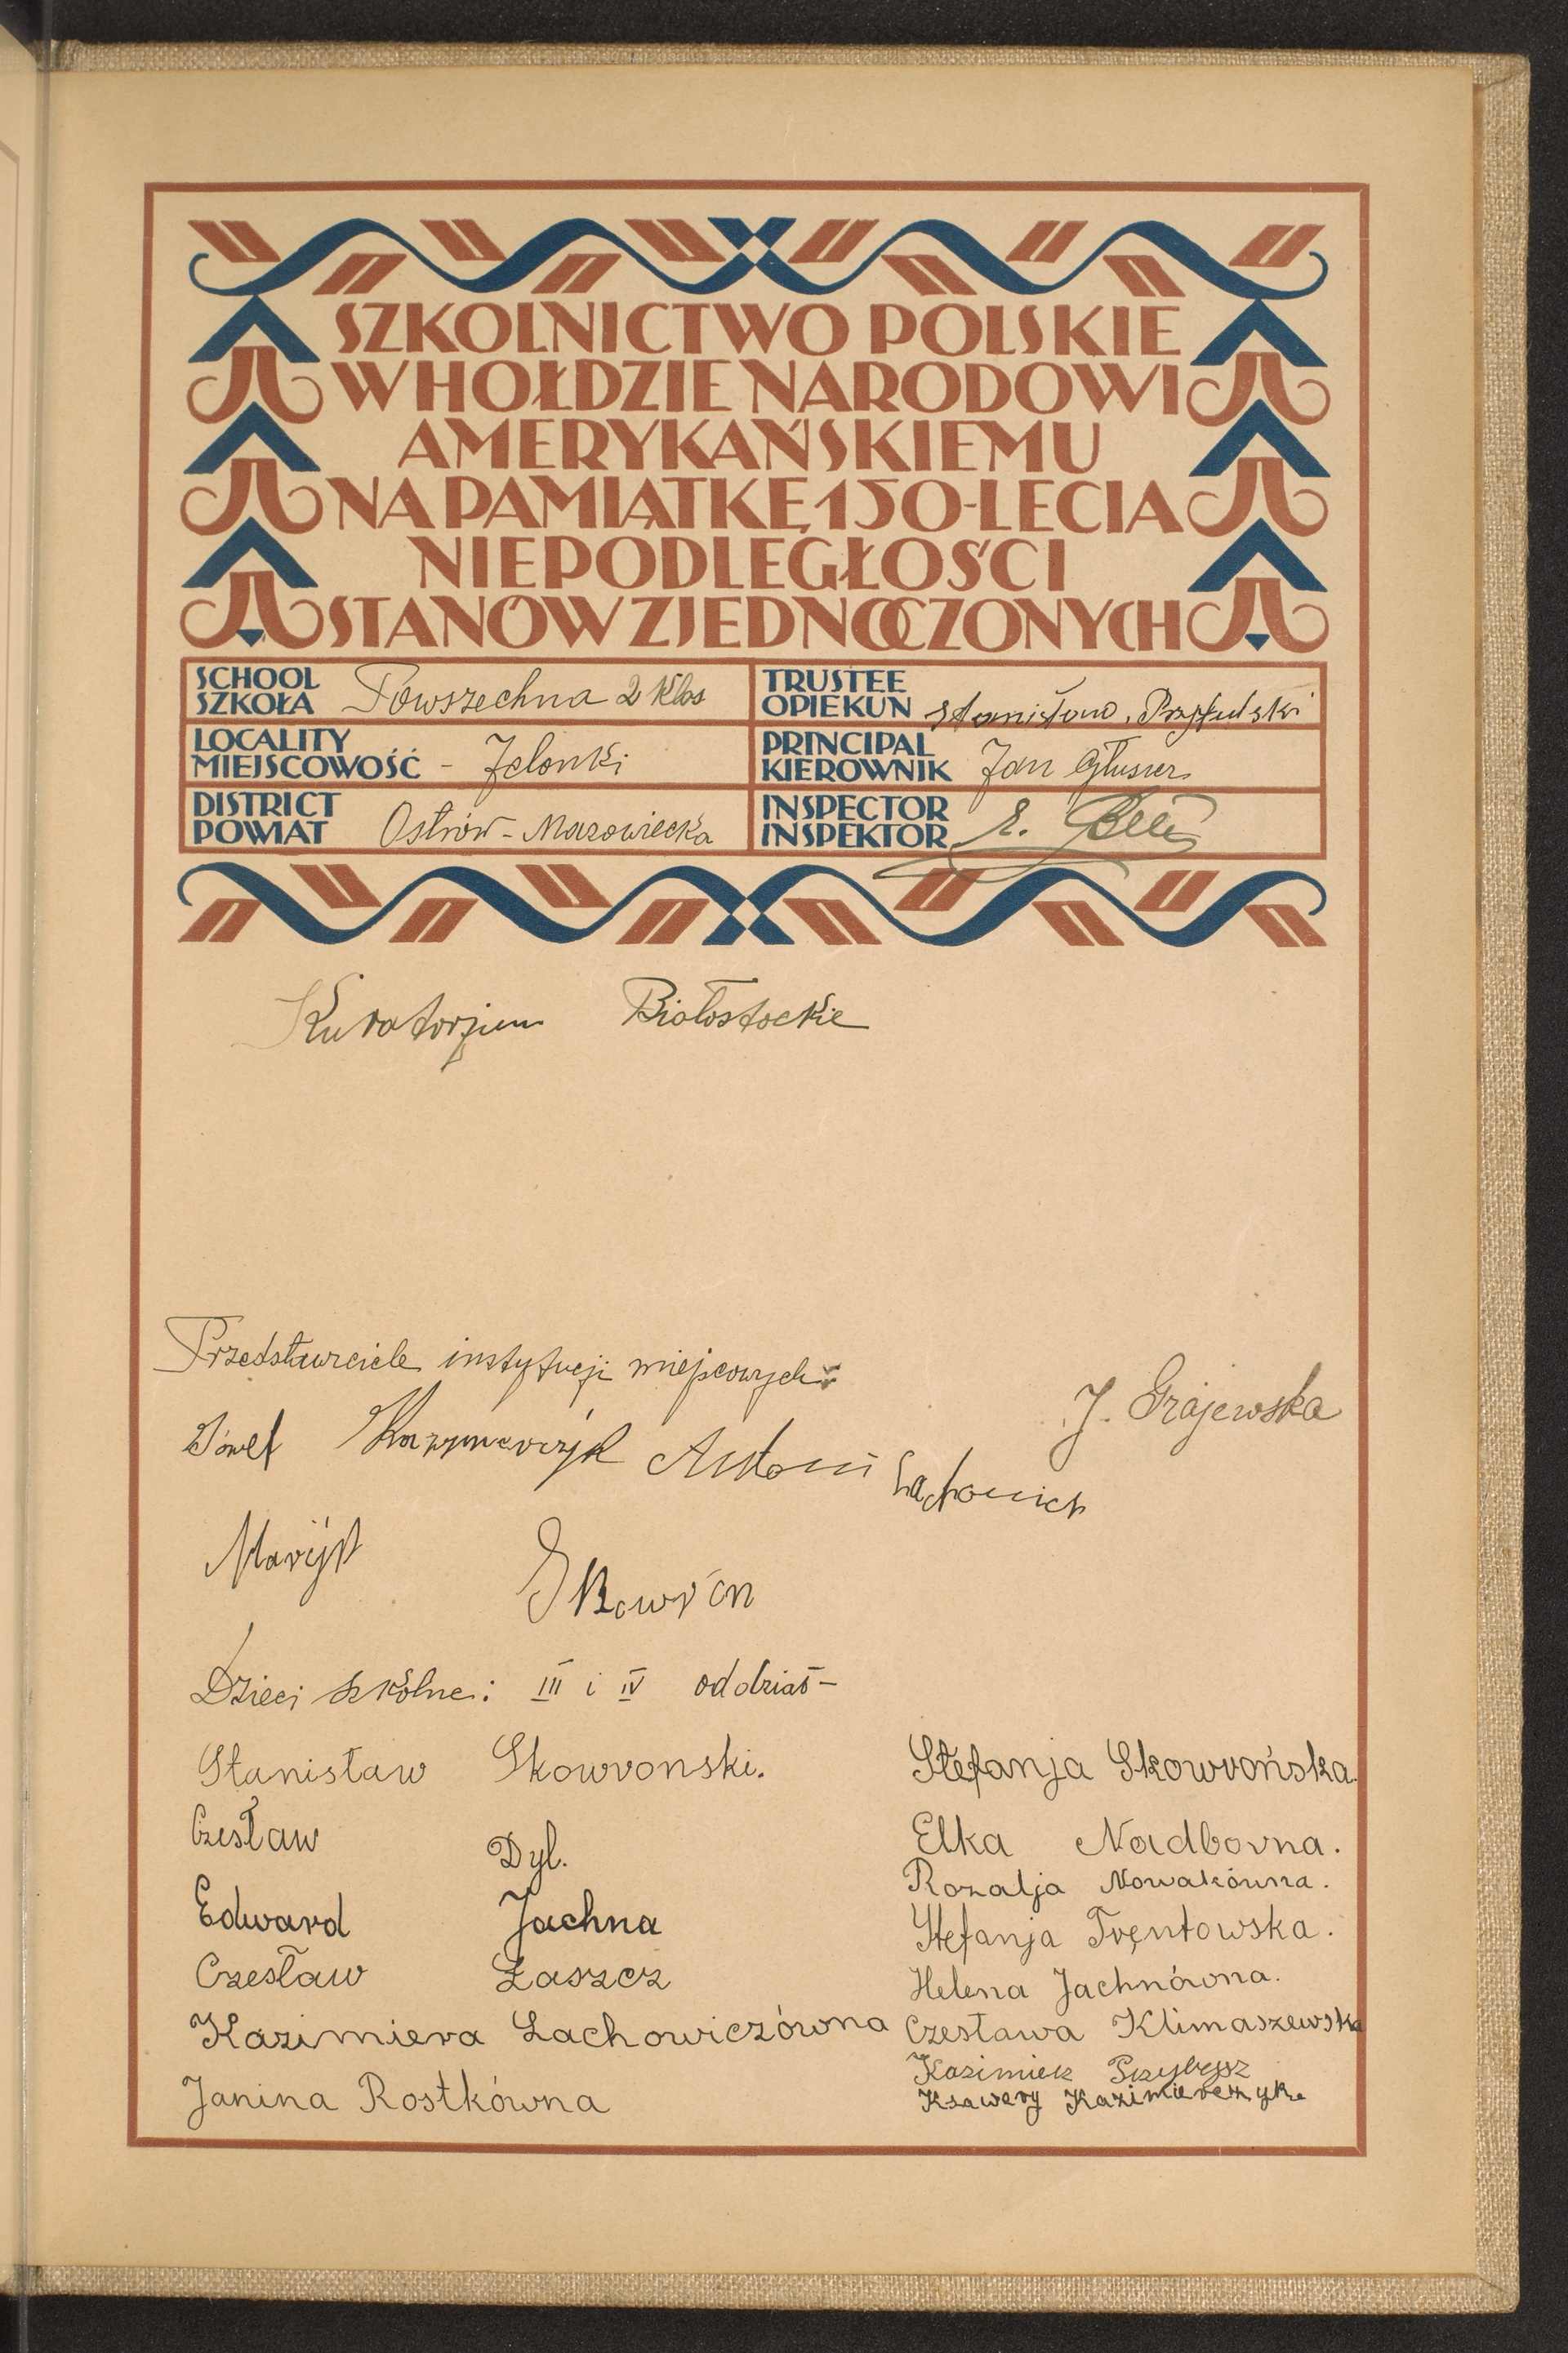 SZKOLNICTWO POLSKIE
W HOŁDZIE NARODOWI
AMERYKAŃSKIEMU
NA PAMIĄTKĘ 150-LECIA
NIEPODLEGŁOŚCI
STANÓW ZJEDNOCZONYCH
SCHOOL
SZKOŁA Powszechna 2 Klas
TRUSTEE
OPIEKUN Stanisław
LOCALITY
MIEJSCOWOŚĆ - Jelonki
PRINCIPAL
KIEROWNIK Jan
DISTRICT
POWIAT Ostrów-Mazowiecka
INSPECTOR
INSPEKTOR
Kuratorjum Białostockie
Przedstawiciele instytucji miejscowych:
J. Grajewska
Antoni
Skowron
Dzieci szkolne: III i IV oddział-
Stanisław Skowronski.
Czesław Dyl.
Edward Jachna
Czesław Łaszcz
Kazimiera Lachowiczówna
Janina Rostkówna
Stefanja Skowrońska.
Elka Nadborna.
Rozalja Nowakówna.
Stefanja Trętowska.
Helena Jachnówna.
Czesława Klimaszewska
Kazimierz Przybysz
Ksawery Kazimierczyk